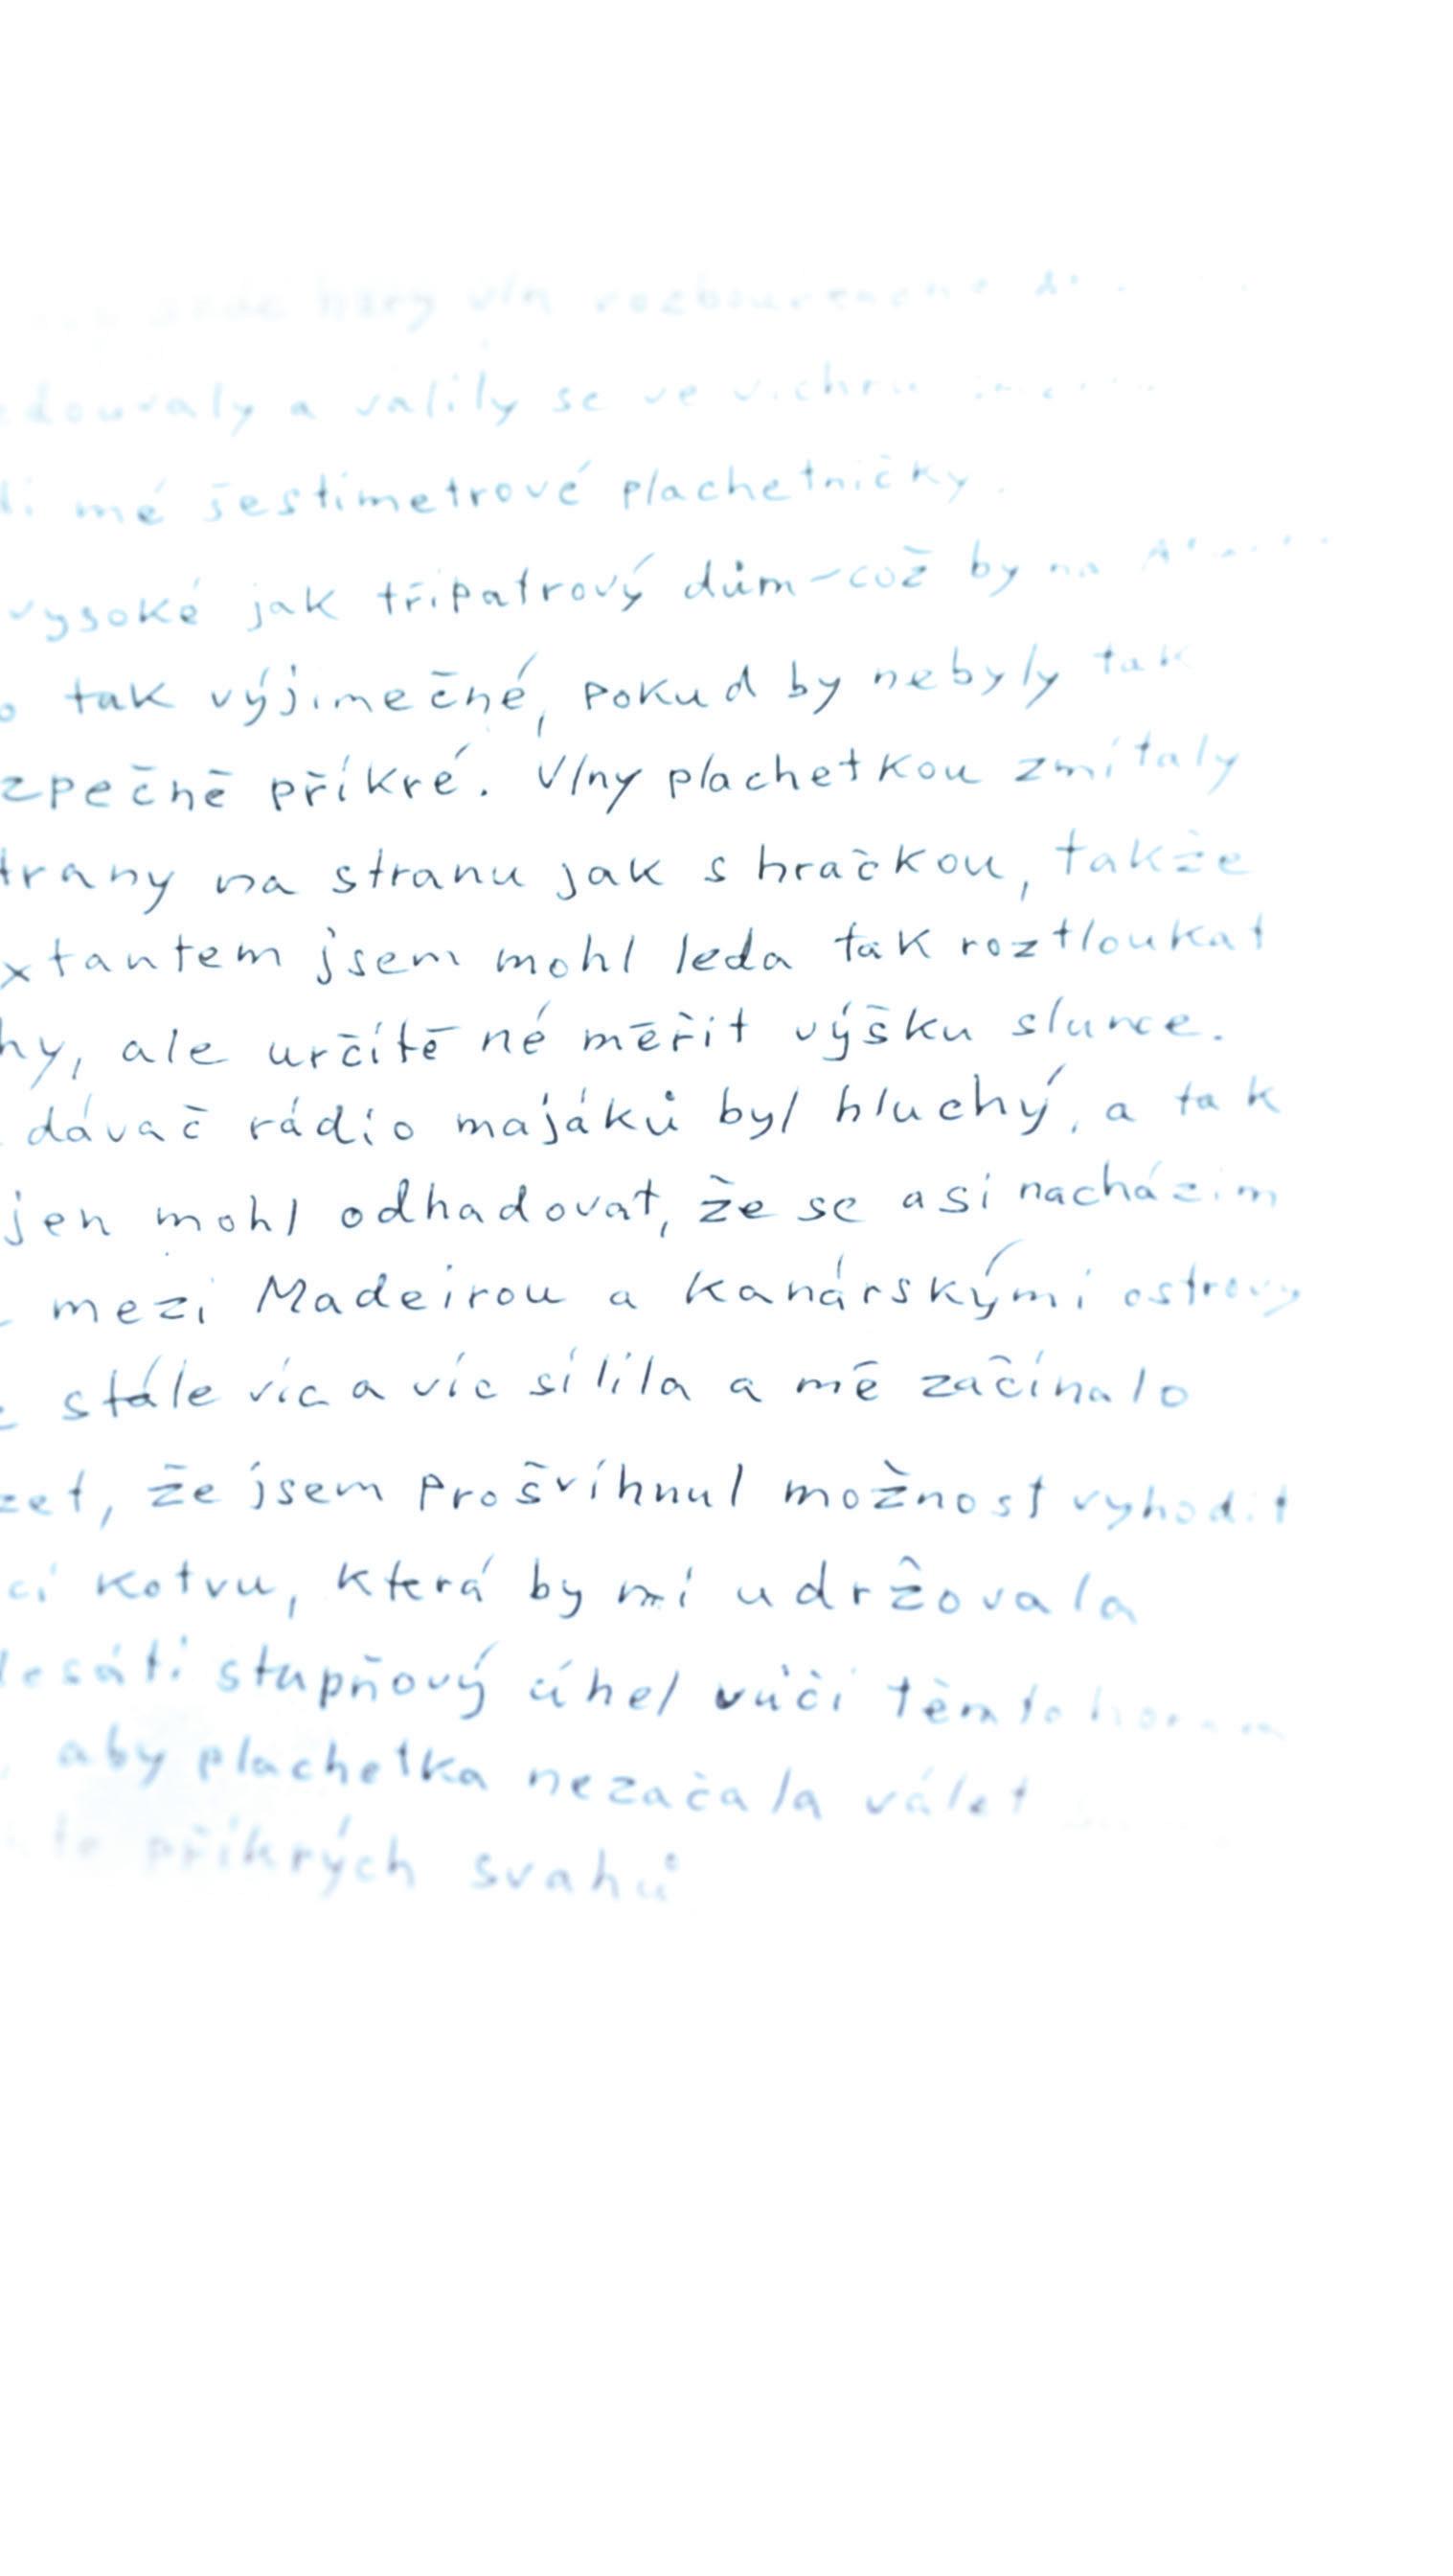 hory vln rozbouřeného
valily se ve vichru
mé šestimetrové plachetničky.
vysoké jak třípatrový dům - což by na
tak výjimečné, pokud by nebyly tak
zpečně příkré. Vlny plachetkou zmítaly
trany na stranu jak s hračkou, takže
xtantem jsem mohl leda tak roztloukat
hy, ale určitě né měřit výšku slunce.
dávač rádio majáků byl hluchý, a tak
jen mohl odhadovat, že se asi nacházím
mezi Madeirou a Kanárskými ostrovy
stále víc a víc sílila a mě začínalo
zet, že jsem prošvihnul možnost vyhodit
cí kotvu, která by mi udržovala
desáti stupňový úhel vůči těmto horám
aby plachetka nezačala válet
příkrých svahů